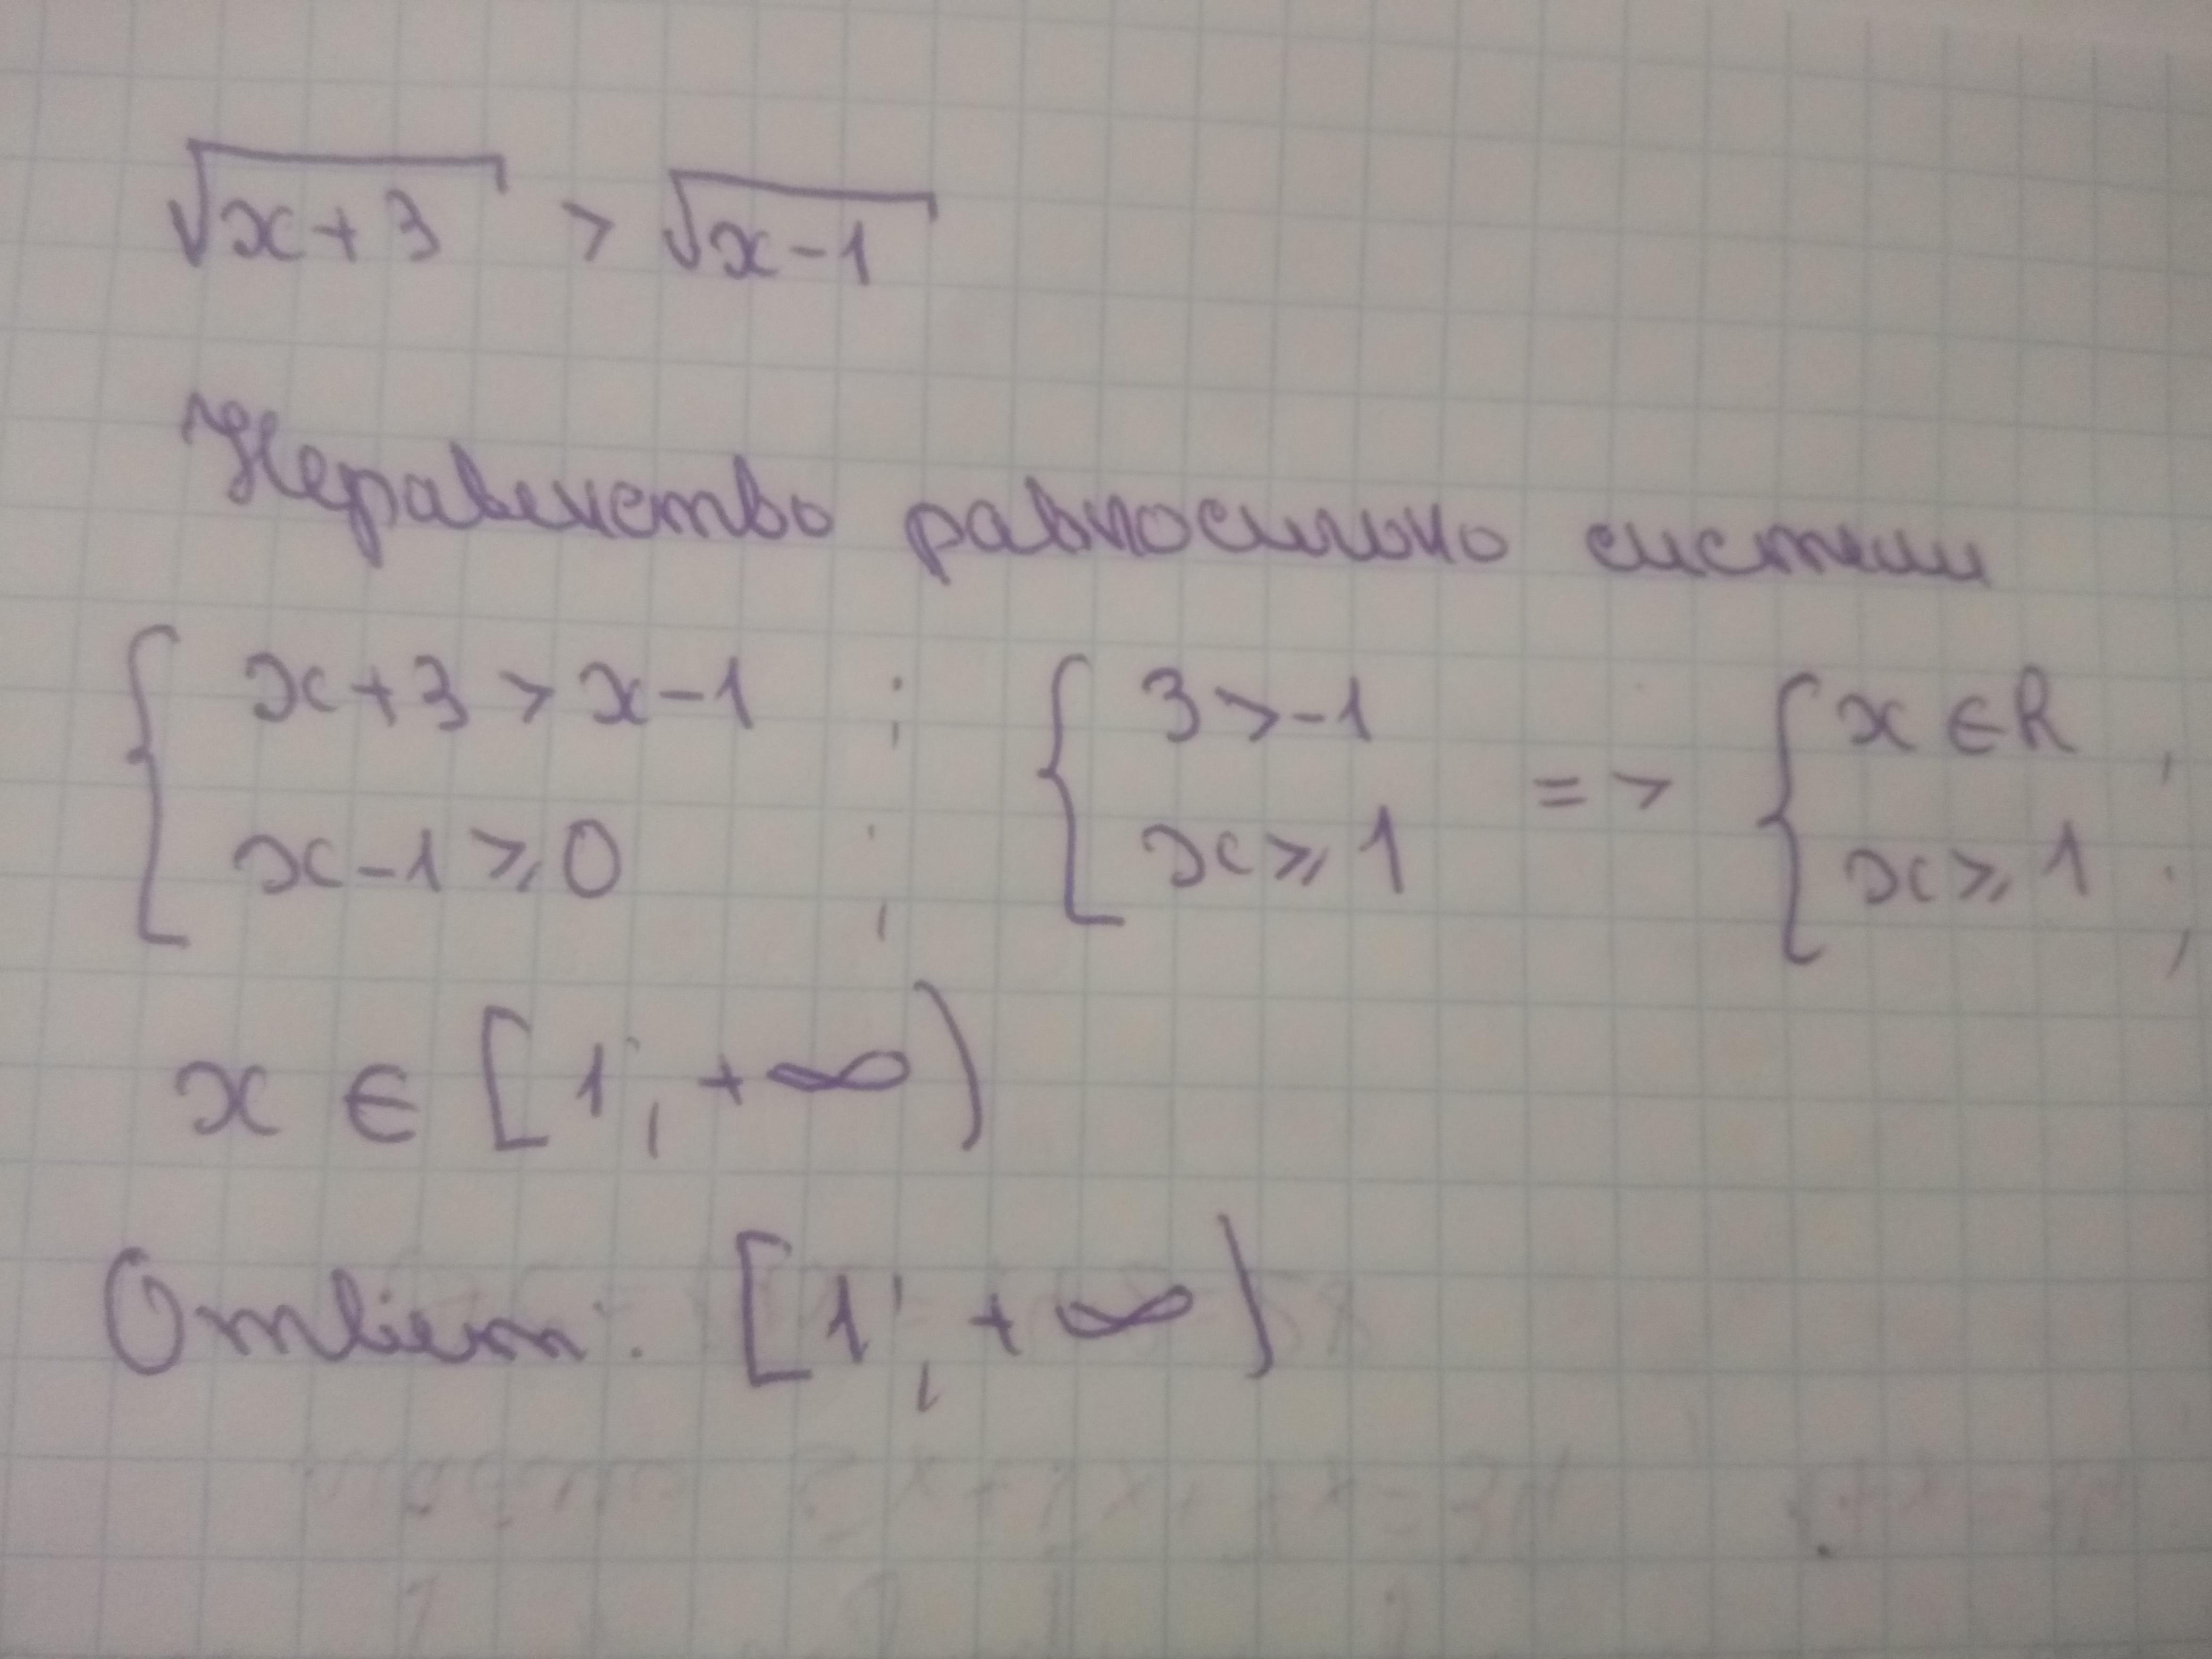 √(x+3) > √(x-1)
Неравенство равносильно системе
{ x+3 > x-1 ; { 3 > -1 => { x ∈ R ;
x-1 ⩾ 0 ; x ⩾ 1 x ⩾ 1 ;
x ∈ [1; +∞)
Ответ: [1; +∞)